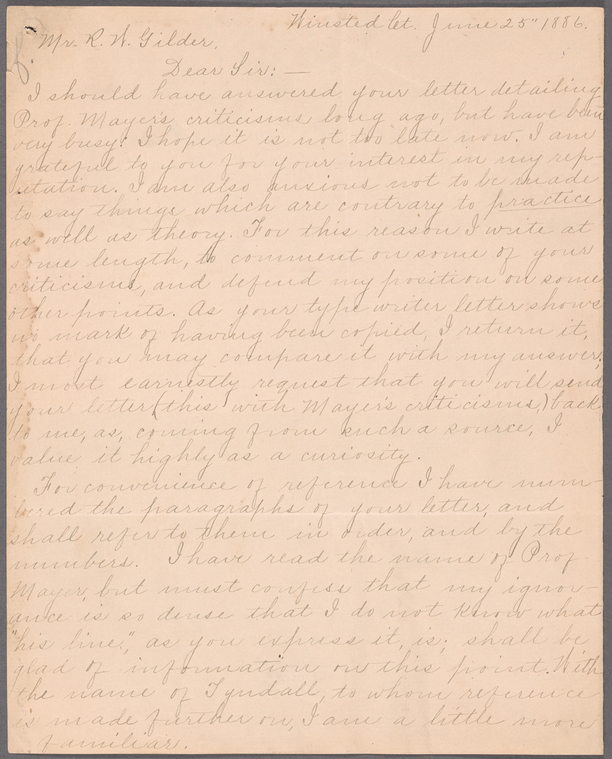 Winsted Ct. June 25" 1886.
Mr. R. W. Gilder,
Dear Sir: —
I should have answered your letter detailing
Prof. Mayer's criticisms long ago, but have been
very busy. I hope it is not too late now. I am
grateful to you for your interest in my rep-
utation. I am also anxious not to be made
to say things which are contrary to practice
as well as theory. For this reason I write at
some length, to comment on some of your
criticisms, and defend my position on some
other points. As your type writer letter shows
no mark of having been copied, I return it,
that you may compare it with my answer.
I most earnestly request that you will send
your letter (this with Mayer's criticisms,) back
to me, as, coming from such a source, I
value it highly as a curiosity.
For convenience of reference I have num-
bered the paragraphs of your letter, and
shall refer to them in order, and by the
numbers. I have read the name of Prof.
Mayer, but must confess that my ignor-
ance is so dense that I do not know what
"his line", as you express it, is; shall be
glad of information on this point. With
the name of Tyndall, to whom reference
is made further on, I am a little more
familiar.